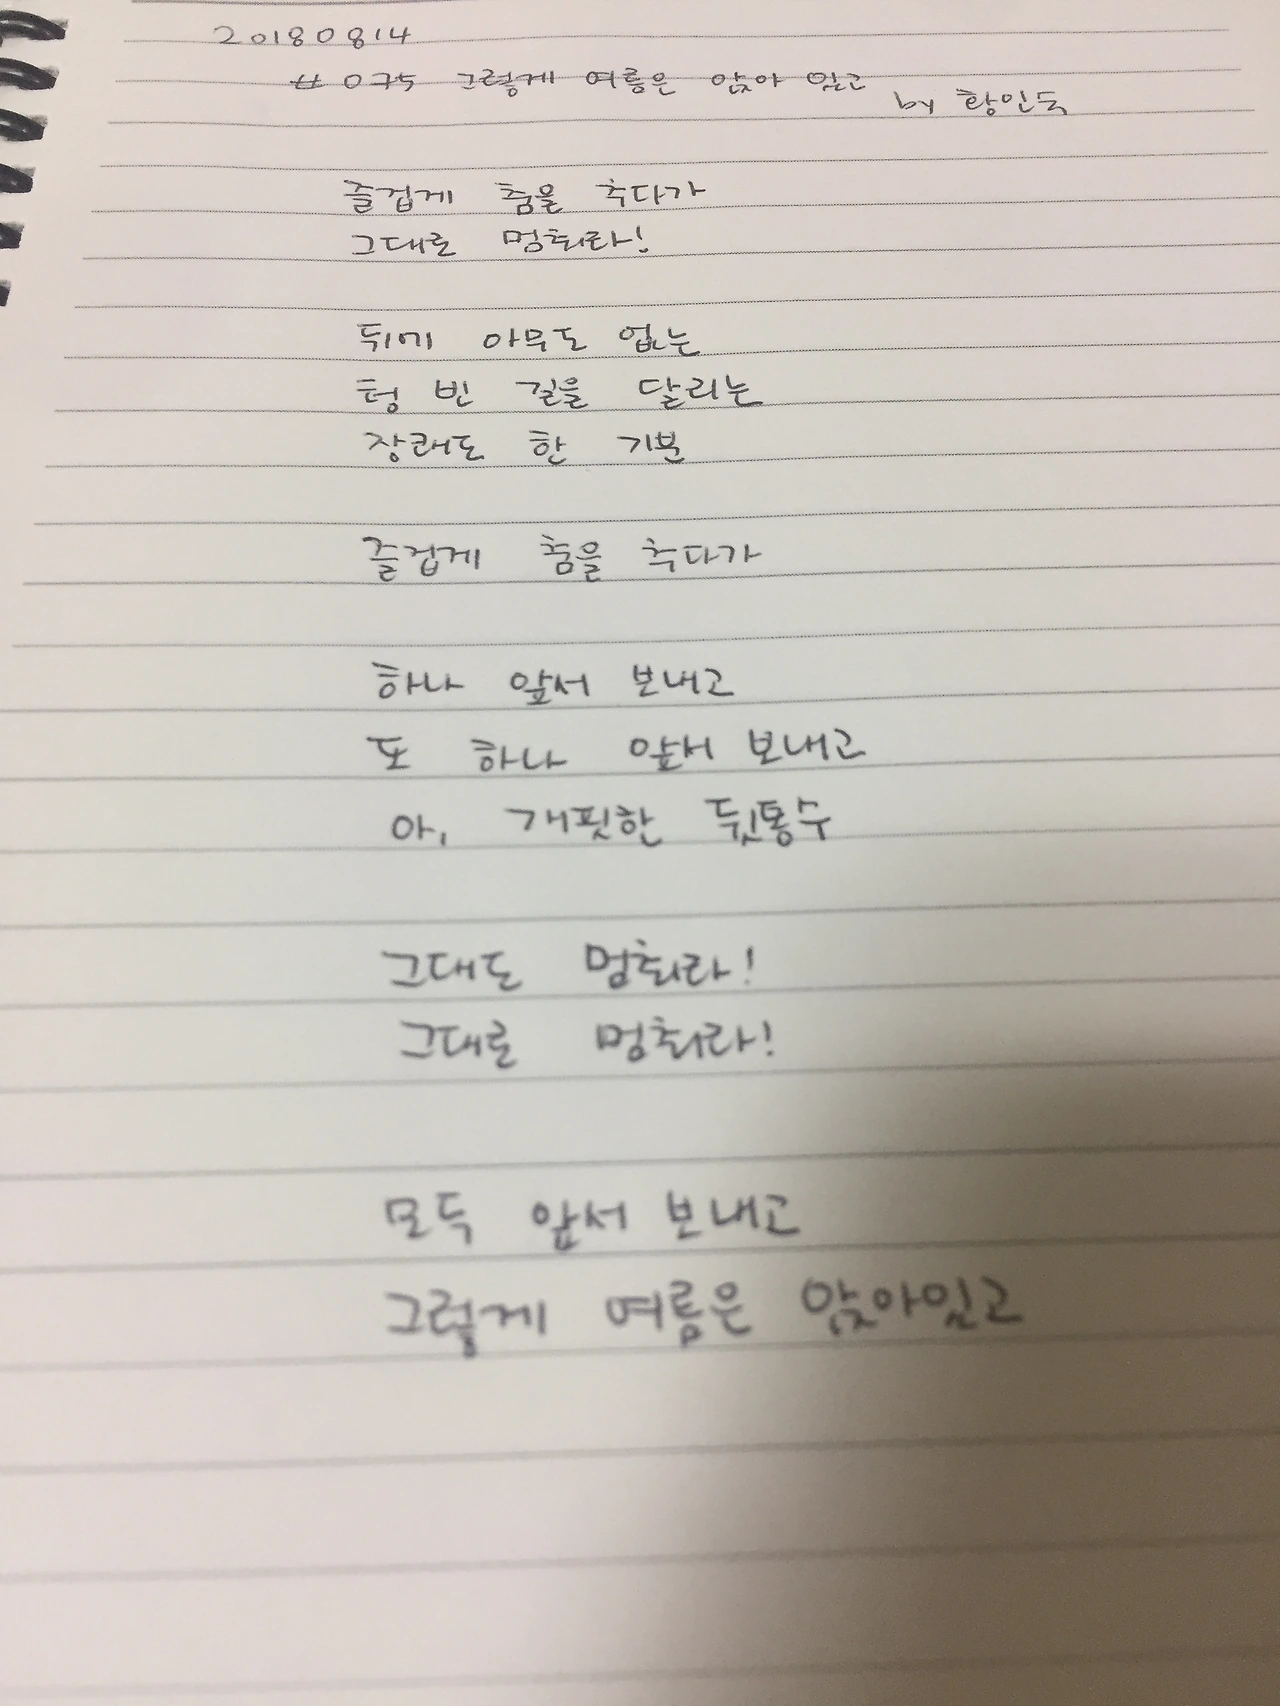 20180814
#075 그렇게 여름은 앉아 있고
by 황인숙
즐겁게 춤을 추다가
그대로 멈춰라!
뒤에 아무도 없는
텅 빈 길을 달리는
장쾌도 한 기분
즐겁게 춤을 추다가
하나 앞서 보내고
또 하나 앞서 보내고
아, 개핏한 뒷통수
그대도 멈춰라!
그대로 멈춰라!
모두 앞서 보내고
그렇게 여름은 앉아있고